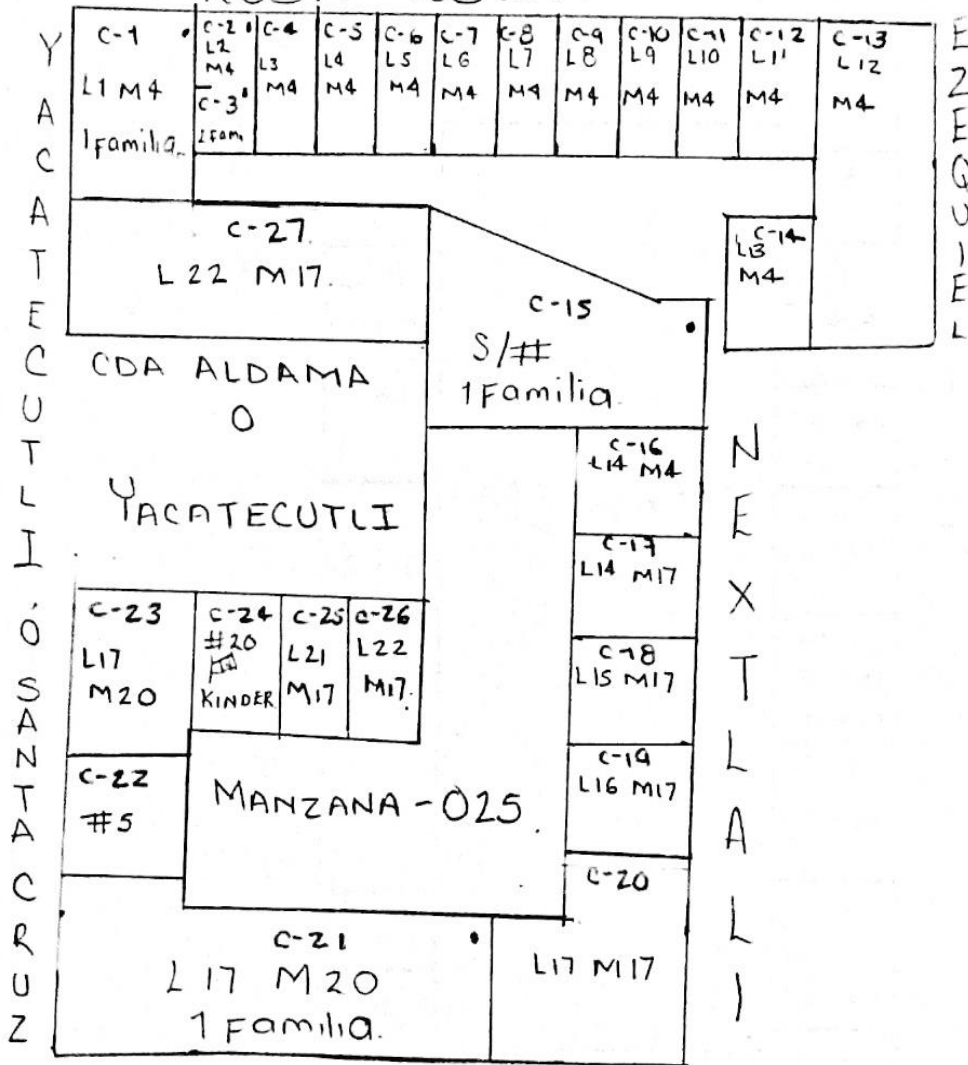 C-1
L1 M4
1 familia.
C-2
L2
M4
C-3
1 fam
C-4
L3
M4
C-5
L4
M4
C-6
L5
M4
C-7
L6
M4
C-8
L7
M4
C-9
L8
M4
C-10
L9
M4
C-11
L10
M4
C-12
L11
M4
C-13
L12
M4
C-14
L13
M4
EZEQUIEL
YACATECUTLI Ó SANTA CRUZ
C-27.
L22 M17.
C-15
S/#
1 Familia.
CDA ALDAMA
O
YACATECUTLI
C-16
L14 M4
C-17
L14 M17
C-18
L15 M17
C-19
L16 M17
C-20
L17 M17
NEXTLALI
C-23
L17
M20
C-24
#20
KINDER
C-25
L21
M17
C-26
L22
M17.
C-22
#5
MANZANA-025.
C-21
L17 M20
1 Familia.